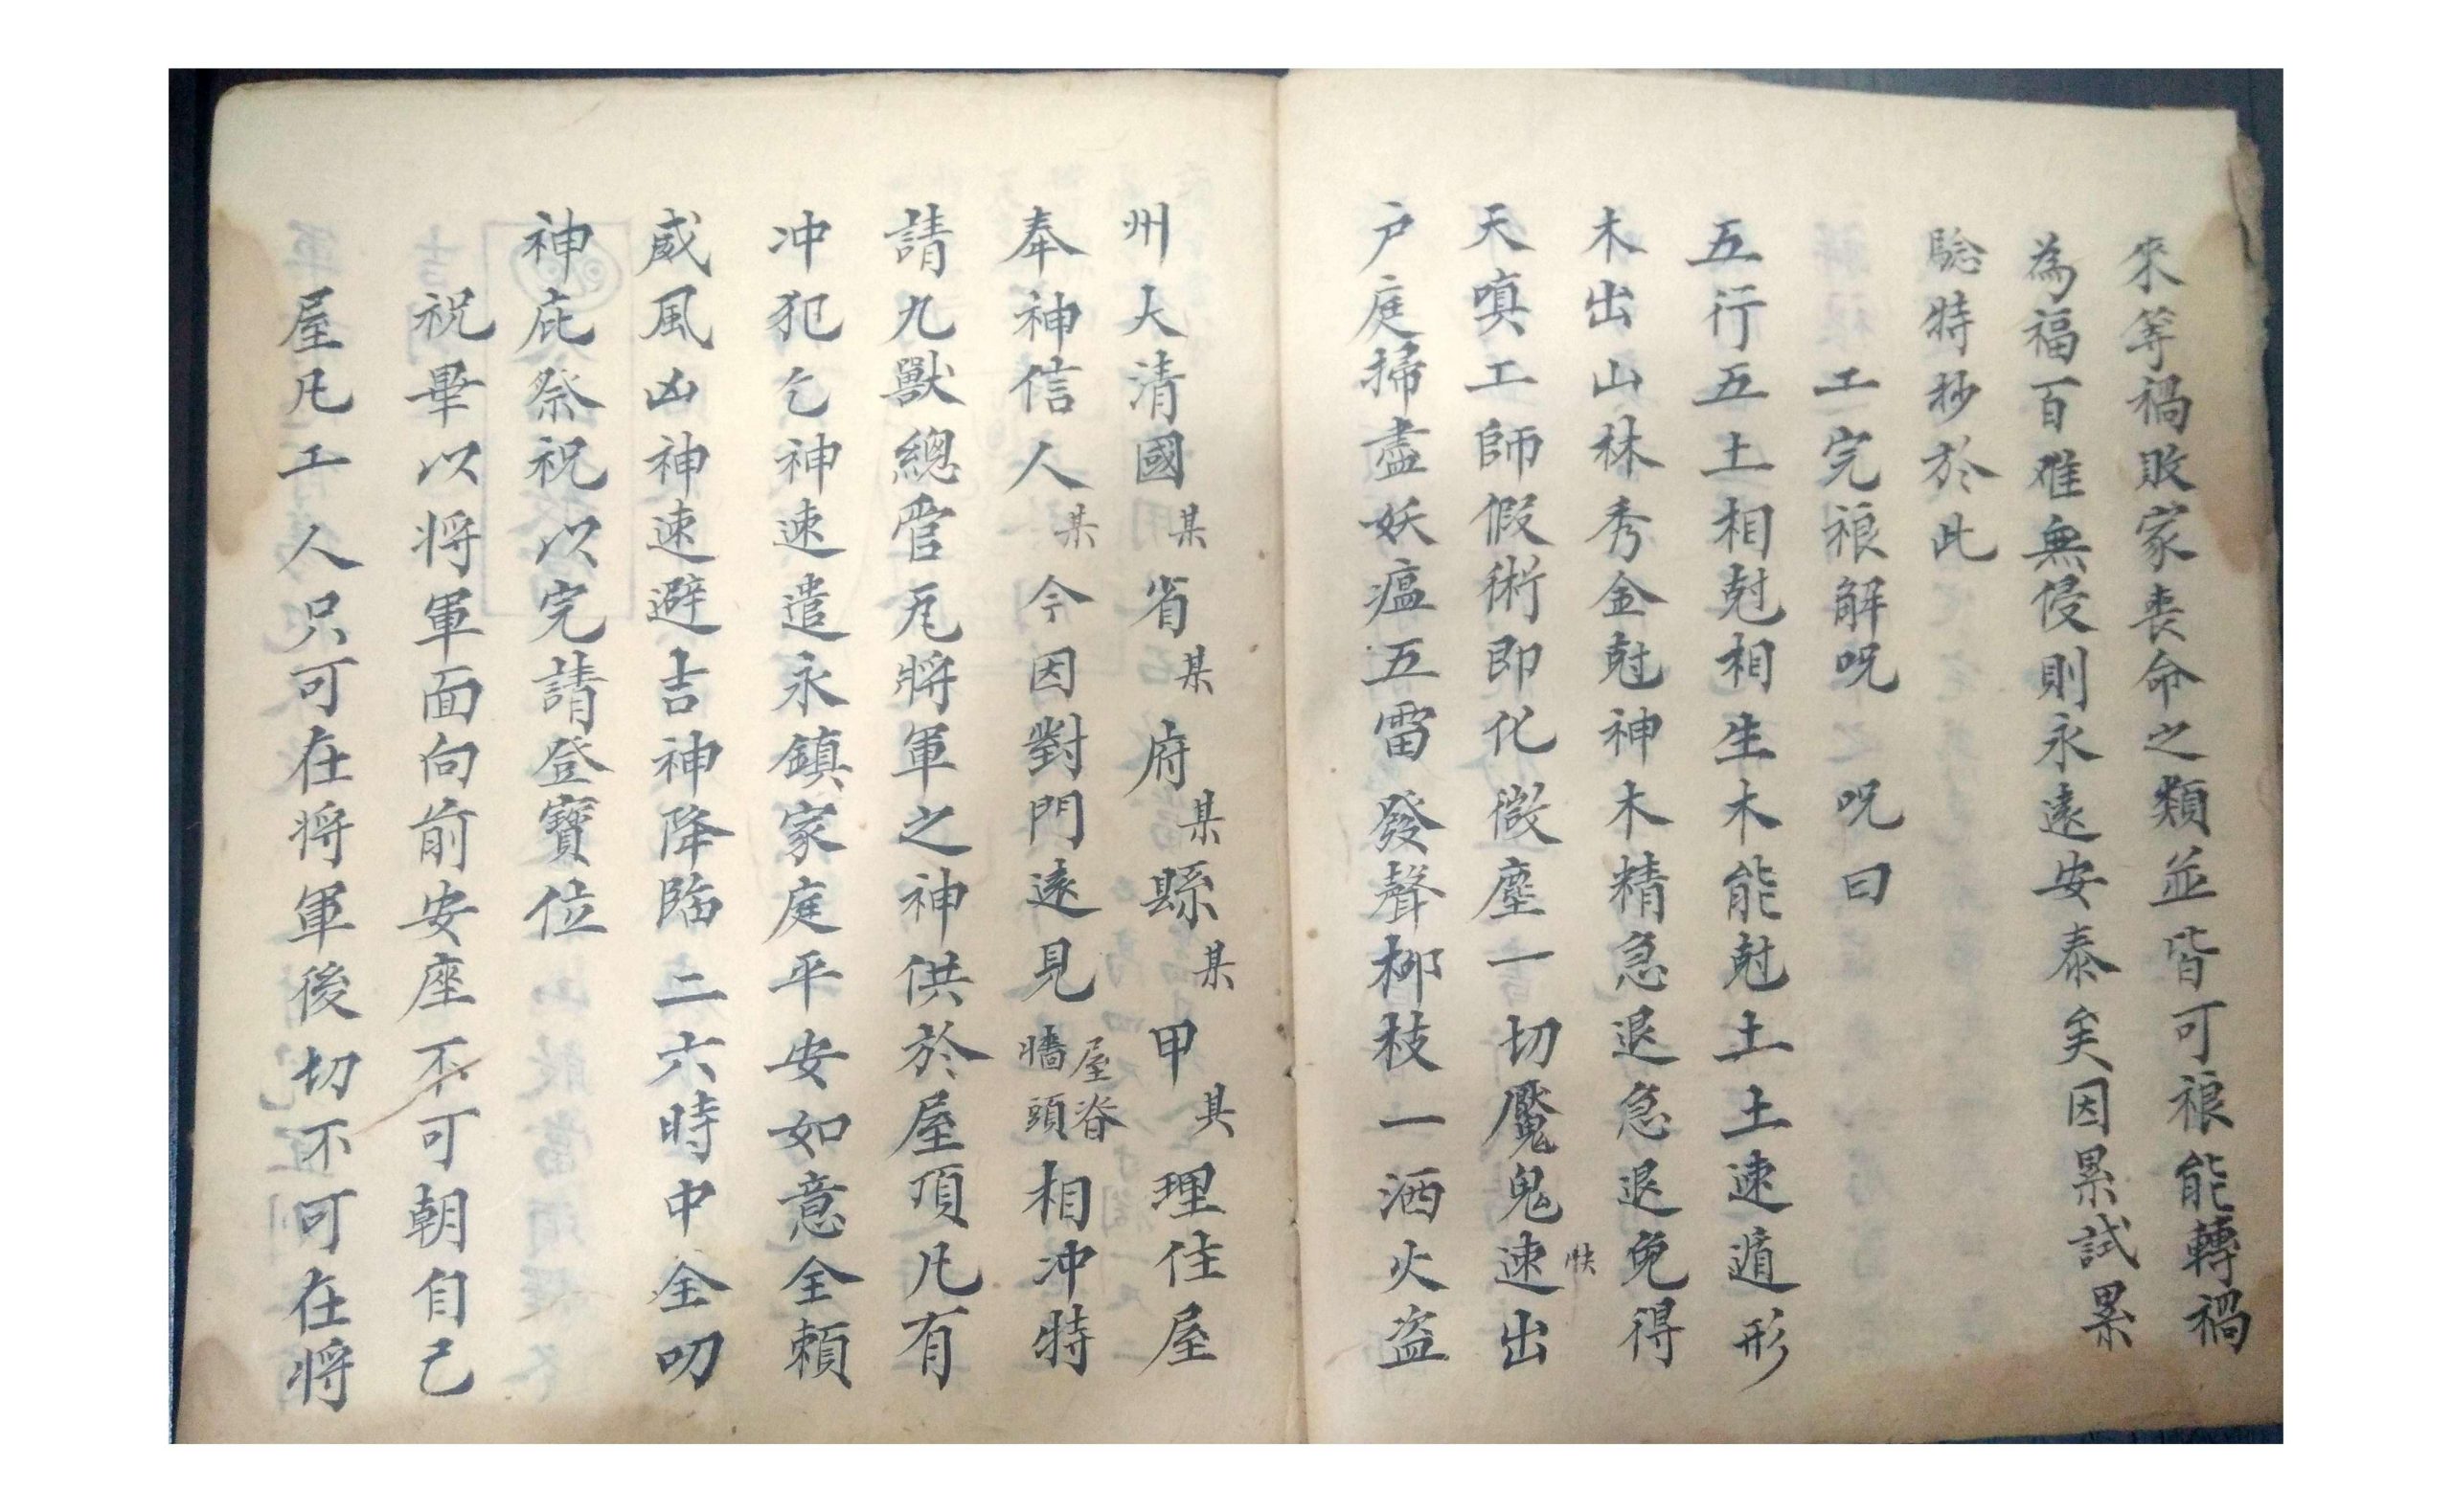 來等禍敗家喪命之類並皆可禳能轉禍
為福百难無侵則永遠安泰矣因累試累
驗特抄於此
工完禳解咒 咒曰
五行五土相尅相生木能尅土土速遁形
木出山林秀金尅神木精急退急退免得
天嗔工師假術即化微塵一切魘鬼速快出
户庭掃盡妖瘟五雷發聲柳枝一洒火盗
州大清國某省某府某縣某甲某理住屋
奉神信人某今因對門遠見屋脊牆頭相冲特
請九獸總管瓦將軍之神供於屋頂凡有
冲犯乞神速遣永鎮家庭平安如意全頼
威風凶神速避吉神降臨二六時中全叨
神庇祭祝以完請登寶位
祝畢以将軍面向前安座不可朝自己
屋凡工人只可在将軍後切不可在将